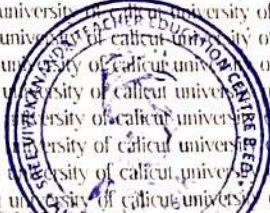 university of calicut university of
university of calicut university of
university of calicut university o
university of calicut university
university of calicut university
university of calicut university
university of calicut university
SREE VIVEKANANDA TEACHER EDUCATION CENTRE B.Ed.